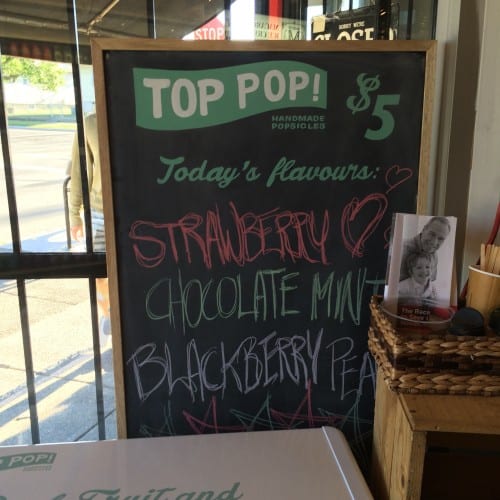 STOP
SORRY WE'RE
CLOSED
TOP POP!
HANDMADE
POPSICLES
$5
Today's flavours:
STRAWBERRY
CHOCOLATE MINT
BLACKBERRY PEA
TOP POP!
Fruit and